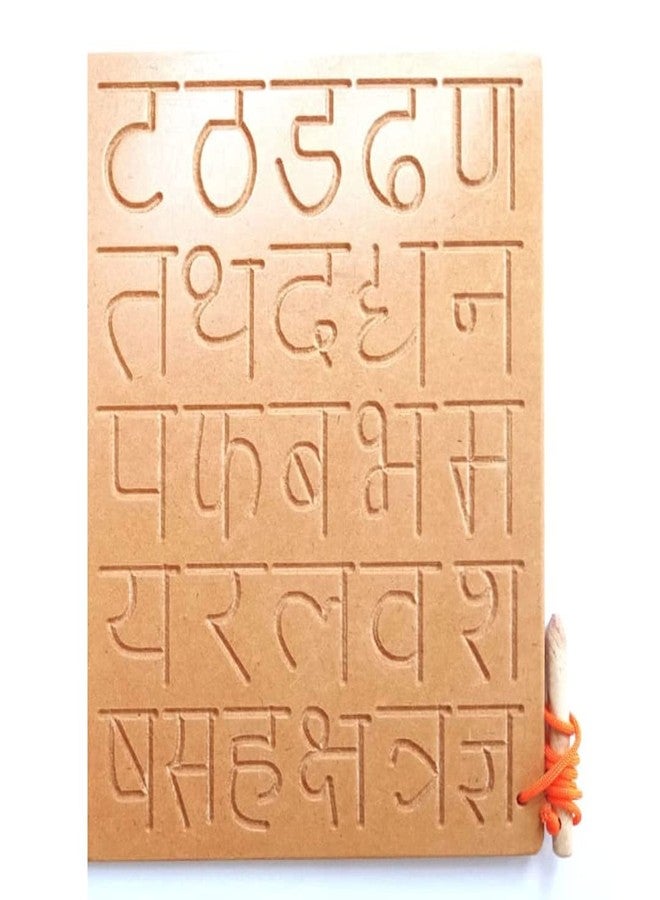 ट ठ ड ढ ण
त थ द ध न
प फ ब भ म
य र ल व श
ष स ह क्ष त्र ज्ञ